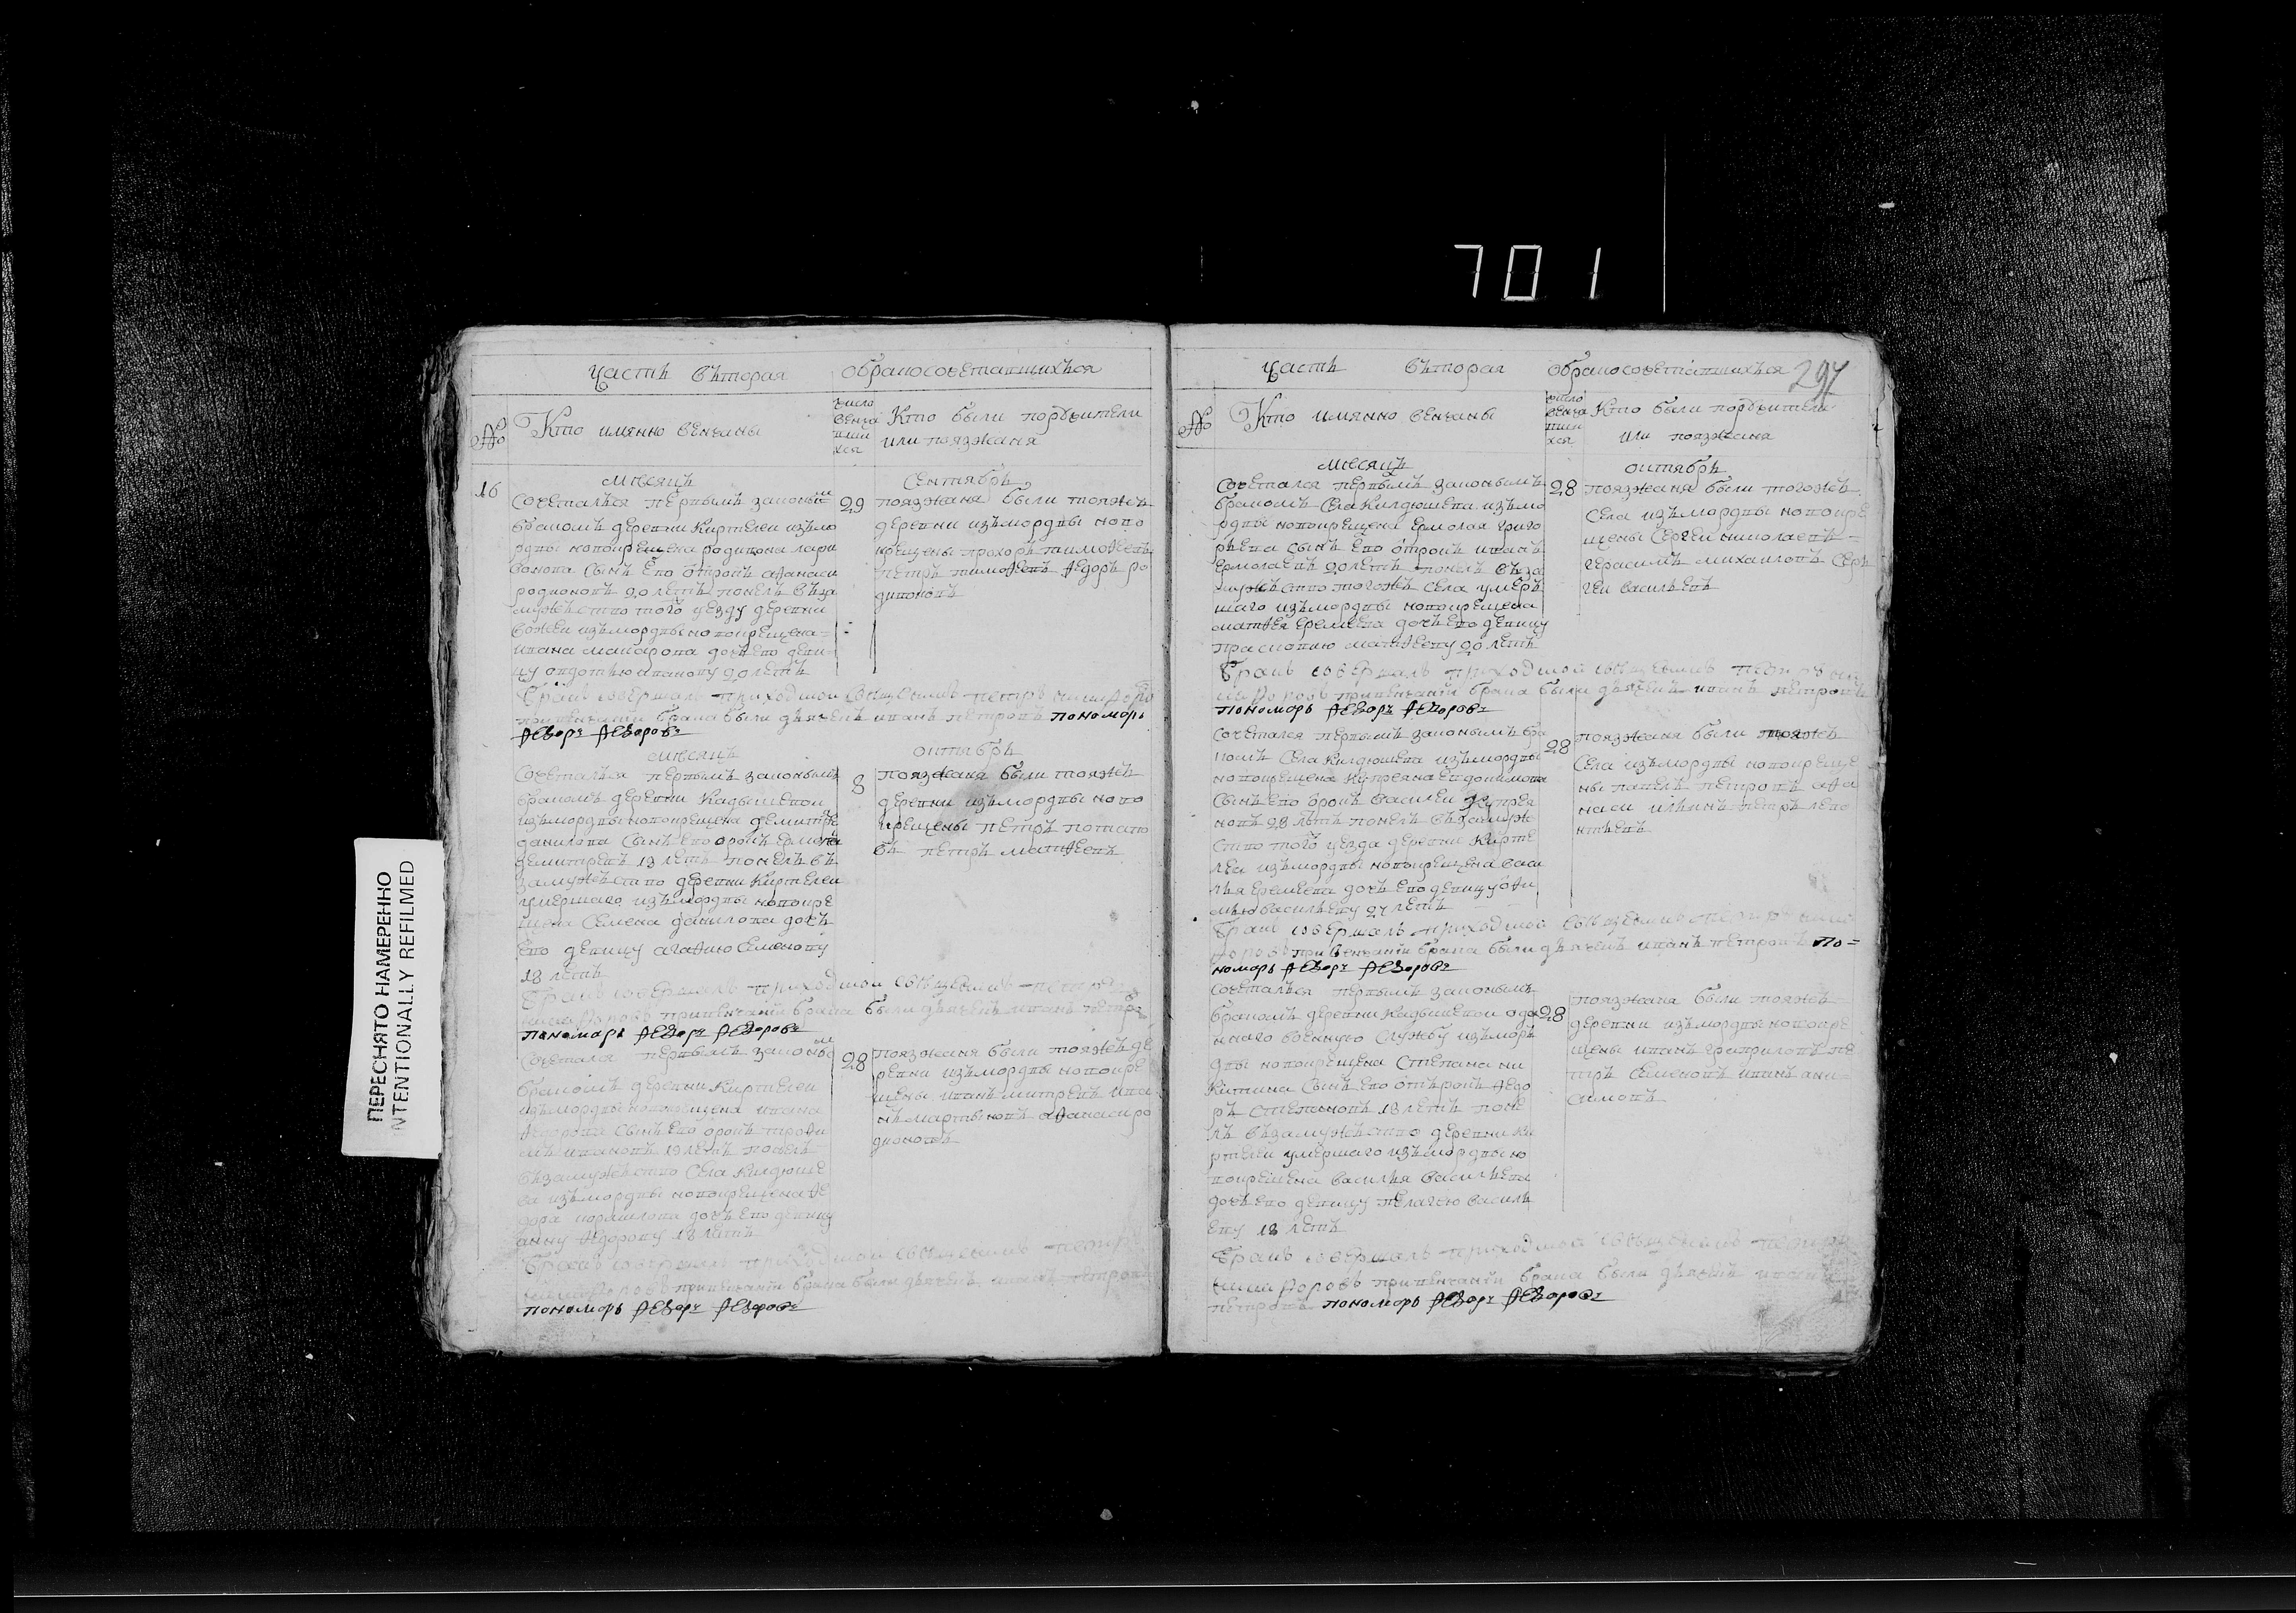 701
Часть вторая о бракосочетавшихся
№
Кто имянно венчаны
число венчавшихся
Кто были поручители
или поязжаня
16
месяцъ
сентябрь
Сочеталься первымъ законым
бракомъ деревни Киртелеи изъ мо
рдвы новокрещена родивона лари
вонова сынъ ево отрокъ афанасеи
родионовъ 20 летъ понелъ въ за
мужество того уезду деревни
изъ мордвы новокрещена =
ивана макарова дочь ево деви=
цу овдотью иванову 20 летъ
29
поязжаня были тояжъ
деревни изъ мордвы ново
крещены прохоръ тимофеевъ
петръ тимофеевъ федоръ ро
дивоновъ
Бракъ совершалъ приходской священникъ петръ
при венчании брака были дьячекъ иванъ петровъ пономарь
Федоръ Федоровъ
месяцъ
октябрь
Сочеталъся первымъ законымъ
бракомъ деревни Кадышевои
изъ мордвы новокрещена демитрея
данилова сынъ ево орокъ ермола
демитревъ 18 летъ понелъ въ
замужество деревни Киртелеи
умершаго изъ мордвы новокре
щена Семена данилова дочь
ево девицу агафию Семенову
18 летъ
8
поязжаня были тояжъ
деревни изъ мордвы ново
крещены петръ потапо
въ петръ матфеевъ
Бракъ совершалъ приходской священникъ петръ
при венчании брака были дьячекъ иванъ петро
пономарь Федоръ Федоровъ
Сочетался первымъ законы
бракомъ деревни Киртелеи
изъ мордвы новокрещена ивана
федорова сынъ ево орокъ трофи
мъ ивановъ 19 летъ понелъ
въ замужество Села Килдюше
ва изъ мордвы новокрещена фе
дора дочь ево девицу
анну федорову 18 летъ
28
поязжаня были тояжъ де
ревни изъ мордвы новокре
щены иванъ митревъ ива
нъ мартыновъ афанаси ро
дионовъ
Бракъ совершалъ приходской священникъ петръ
при венчании брака были дьячекъ иванъ петровъ
пономарь Федоръ Федоровъ
Часть вторая о бракосочетавшихся
297
№
Кто имянно венчаны
число венчавшихся
Кто были поручители
или поязжаня
месяцъ
октябрь
Сочетался первымъ законымъ
бракомъ Села Килдюшева изъ мо
рдвы новокрещена ермолая григо
рьева сынъ ево отрокъ иванъ
ермолаевъ 20 летъ понелъ въ за
мужество тогожъ Села умеръ
шаго изъ мордвы новокрещена
матфея еремеева дочь ево девицу
прасковию матфееву 20 летъ
28
поязжаня были тогожъ
Села изъ мордвы новокре
щены Сергеи николаевъ =
герасимъ михаиловъ Сер
геи васильевъ
Бракъ совершалъ приходской священникъ петръ
при венчании брака были дьячекъ иванъ петровъ
пономарь Федоръ Федоровъ
Сочетался первымъ законымъ бра
комъ Села Килдюшева изъ мордвы
новокрещена купреяна евдокимова
сынъ ево орокъ василеи купрея
новъ 28 летъ понелъ въ замуже
ство того уезда деревни Кирте
леи изъ мордвы новокрещена васи
лья еремеева дочь ево девицу офи
мью васильеву 27 летъ
28
поязжаня были тояжъ
Села изъ мордвы новокреще
ны павелъ петровъ афа
наси ильинъ петръ лево
нтьевъ
Бракъ совершалъ приходской священникъ петръ
при венчании брака были дьячекъ иванъ петровъ по=
номарь Федоръ Федоровъ
Сочеталься первымъ законымъ
бракомъ деревни Кадышевои ода
ннаго военную службу изъ морь
двы новокрещена Степана ни
китина сынъ ево отърокъ федо
ръ степановъ 18 летъ поне
лъ въ замужество деревни Ки
ртелеи умершаго изъ мордвы но
вокрещена василья васильева
дочь ево девицу пелагею василь
еву 18 летъ
28
поязжаня были тояжъ
деревни изъ мордвы новокре
щены иванъ гавриловъ пе
тръ семеновъ иванъ ани
симовъ
Бракъ совершалъ приходской священникъ петръ
при венчании брака были дьячекъ иванъ
петровъ пономарь Федоръ Федоровъ
ПЕРЕСНЯТО НАМЕРЕННО
INTENTIONALLY REFILMED